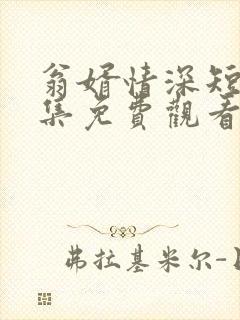 翁婿情深短
集免費觀看
弗拉基米尔-